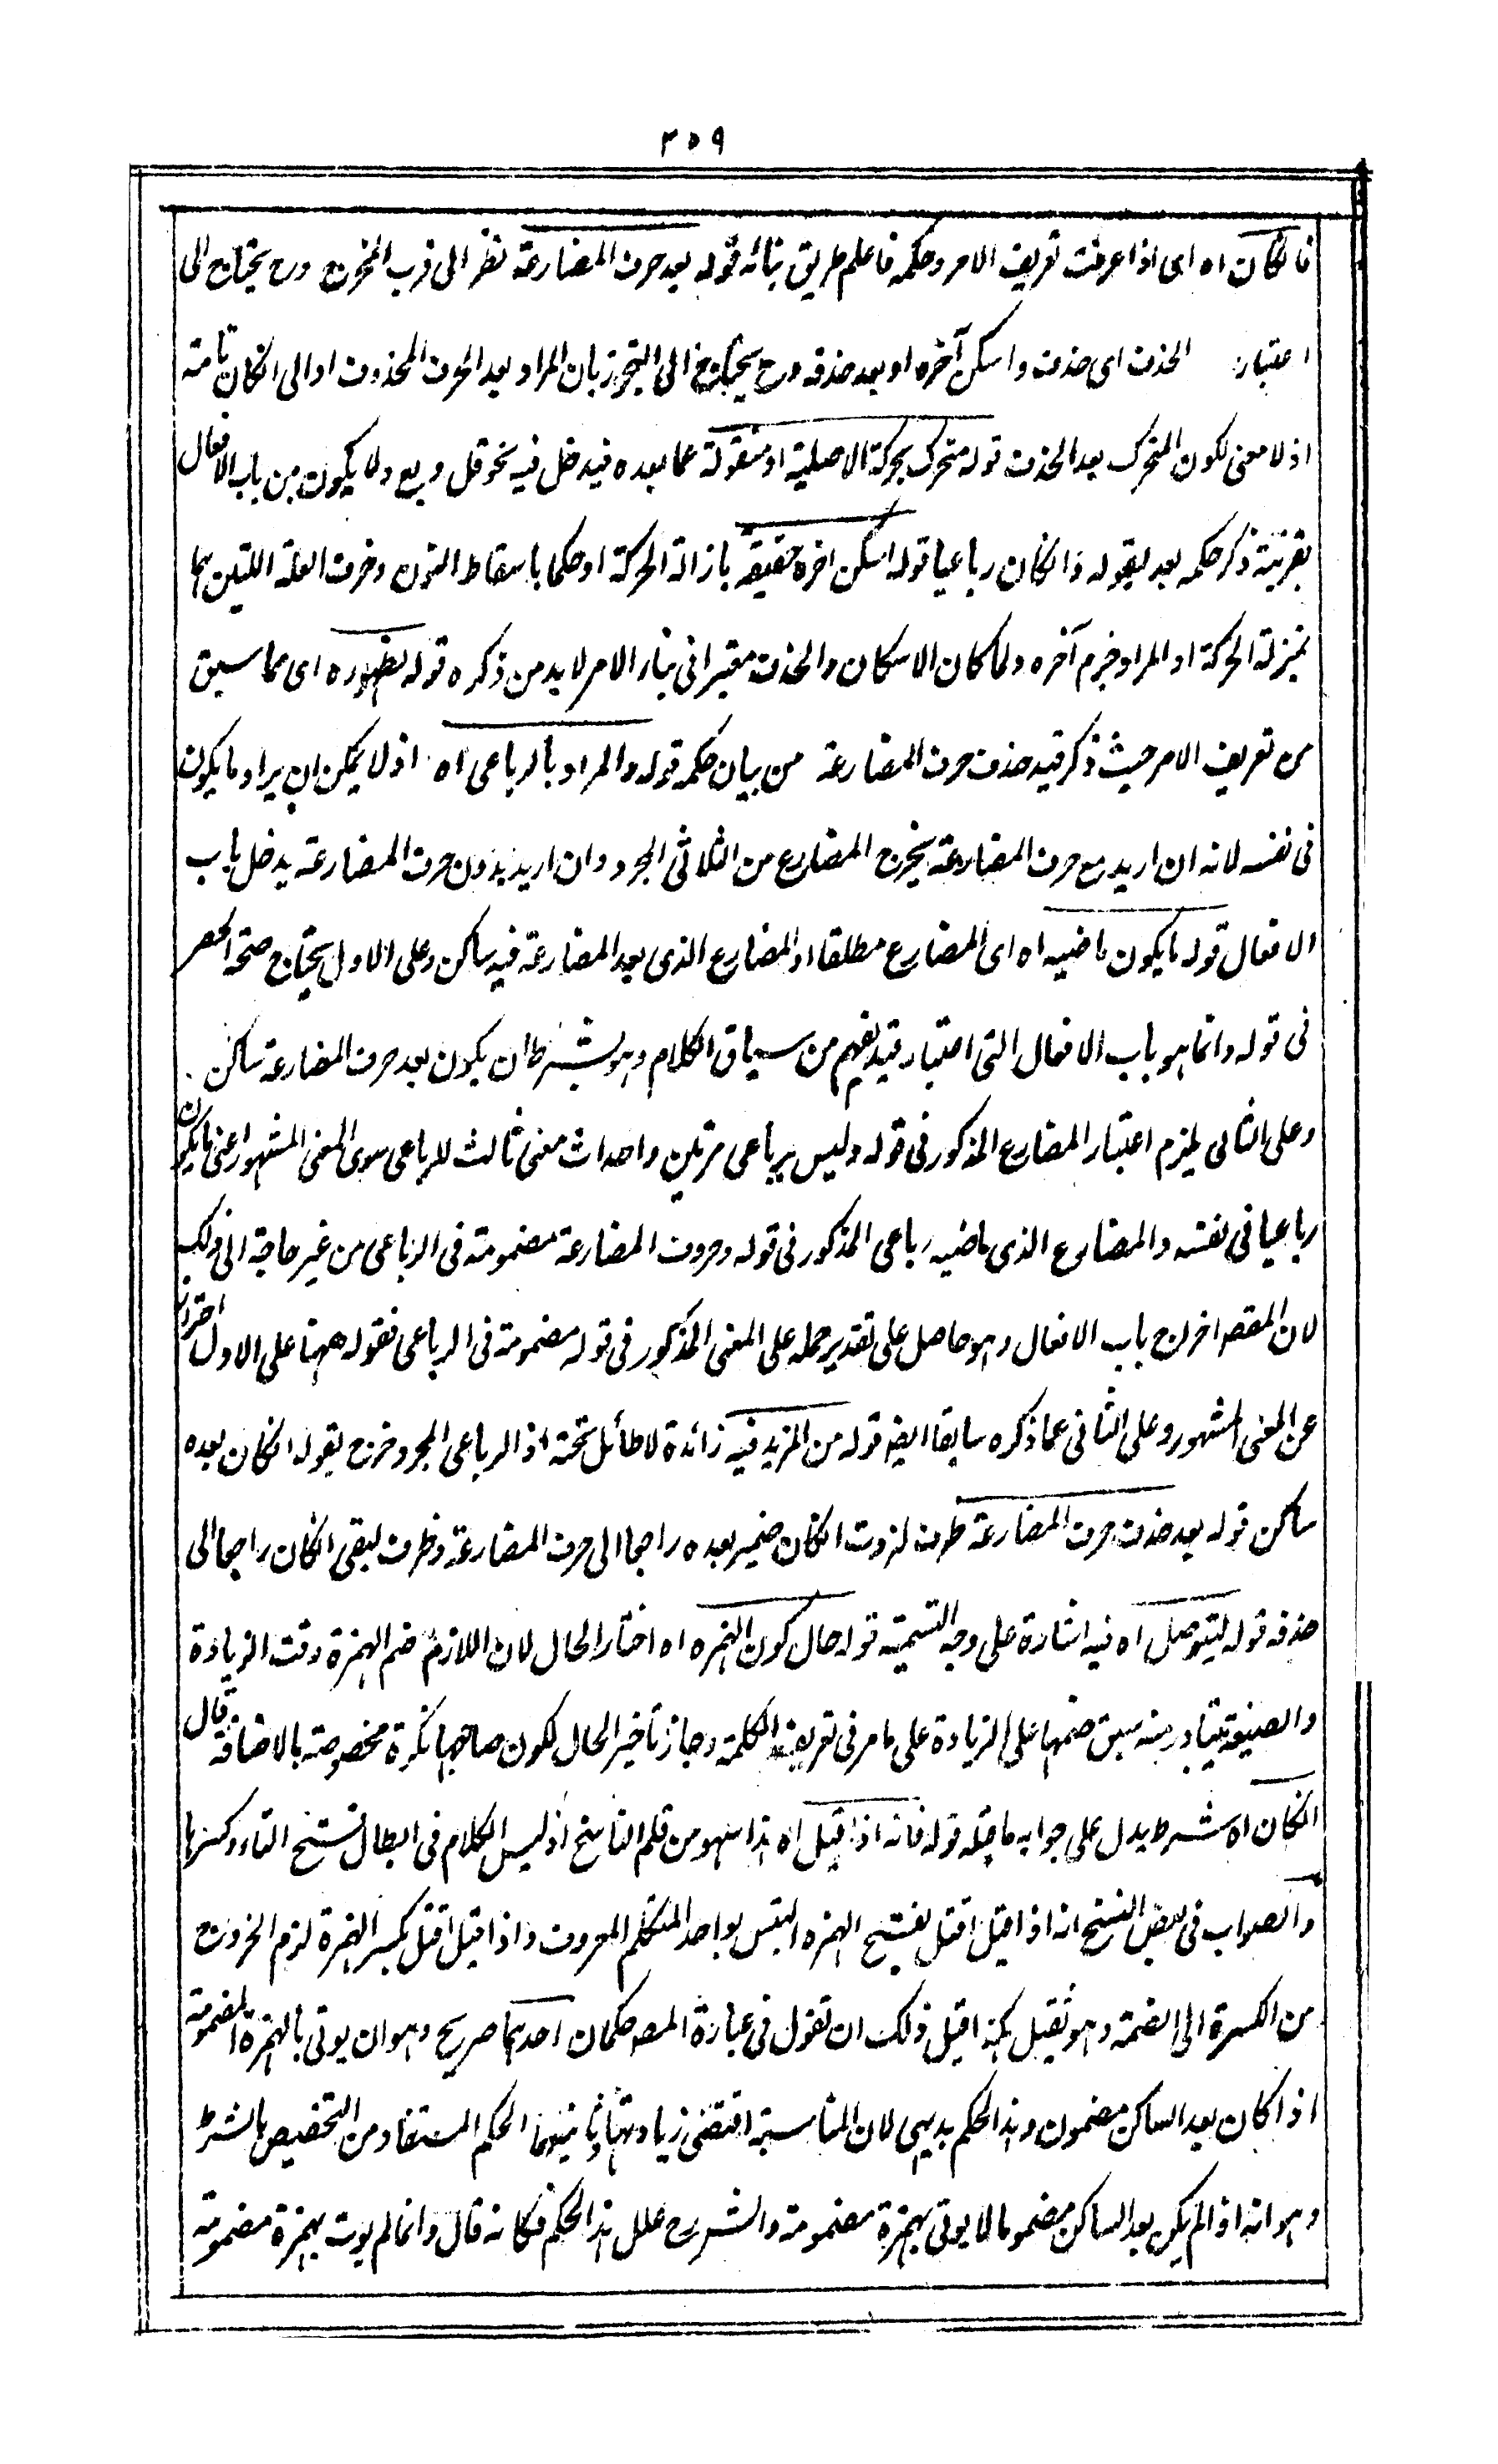 ٣٥٩
فانكان اه اى اذا عرفت تعريف الامر وحكمه فاعلم طريق بنائه قوله بعد حرف المضارعة نظر الى قرب المخرج وح يحتاج الى
اعتبار الحذف اى حذفت واسكن آخره او بعد حذفه وح يحتاج الى التجوز بان المراد بعد الحرف المحذوف او الى انكان تامة
اذ لا معنى لكون المتحرك بعد الحذف قوله متحرك بحركة الاصلية او منقولة عما بعده فيدخل فيه نحو قل وبع ولا يكون من باب الافعال
بقرينة ذكر حكمه بعد بقوله وانكان رباعيا قوله اسكن اخره حقيقة بازالة الحركة او حكما باسقاط النون وحرف العلة اللتين هما
بمنزلة الحركة او المراد جزم آخره ولما كان الاسكان والحذف معتبرا فى بناء الامر لابد من ذكره قوله لظهوره اى مما سبق
من تعريف الامر حيث ذكر قيد حذف حرف المضارعة من بيان حكمه قوله والمراد بالرباعى اه اذ لا يمكن ان يراد ما يكون
فى نفسه لانه ان اريد مع حرف المضارعة يخرج المضارع من الثلاثى المجرد وان اريد بدون حرف المضارعة يدخل باب
الافعال قوله ما يكون ماضيه اه اى المضارع مطلقا او المضارع الذى بعد المضارعة فيه ساكن وعلى الاول يحتاج صحة الحصر
فى قوله وانما هو باب الافعال الى اعتبار قيد يفهم من سياق الكلام وهو بشرط ان يكون بعد حرف المضارعة ساكن
وعلى الثانى يلزم اعتبار المضارع المذكور فى قوله وليس برباعى مرتين واحداث معنى ثالث للرباعى سوى المعنى المشهور اعنى ما يكون
رباعيا فى نفسه والمضارع الذى ماضيه رباعى المذكور فى قوله وحروف المضارعة مضمومة فى الرباعى من غير حاجة الى ذلك
لان المقص اخراج باب الافعال وهو حاصل على تقدير حمله على المعنى المذكور فى قوله مضمومة فى الرباعى فقوله ههنا على الاول احتراز
عن المعنى المشهور وعلى الثانى عما ذكره سابقا ايضا قوله من المزيد فيه زائدة لا طائل تحته اذ الرباعى المجرد خرج بقوله انكان بعده
ساكن قوله بعد حذف حرف المضارعة ظرف لزوت انكان ضمير بعده راجعا الى حرف المضارعة وظرف لبقى انكان راجعا الى
حذفه قوله ليتوصل اه فيه اشارة على وجه التسمية قوله حال كون الهمزه اه اختار الحال لان اللازم ضم الهمزة وقت الزيادة
والصيغة يتبادر منه سبق ضمها على الزيادة على ما مر فى تعريف الكلمة وجاز تأخير الحال لكون صاحبها نكرة مخصوصة بالاضافة قال
انكان اه شرط يدل على جوابه ما قبله قوله فانه اذا قيل اه هذا سهو من قلم الناسخ اذ ليس الكلام فى ابطال فتح التاء وكسرها
والصواب فى بعض النسخ انه اذا قيل اقتل بفتح الهمزه التبس بواحد المتكلم المعروف واذا قيل اقتل بكسر الهمزة لزم الخروج
من الكسرة الى الضمة وهو ثقيل كما قيل ذلك ان تقول فى عبارة المص حكمان احدهما صريح وهو ان يوتى بالهمزة المضمومة
اذا كان بعد الساكن مضموما وهذا الحكم بديهى لان المناسبة اقتضى زيادتها وثانيهما الحكم المستفاد من التخصيص بالشرط
وهو انه اذا لم يكن بعد الساكن مضموما لا يوتى بهمزة مضمومة والشرح علل هذا الحكم فكانه قال وانما لم يوت بهمزة مضمومة